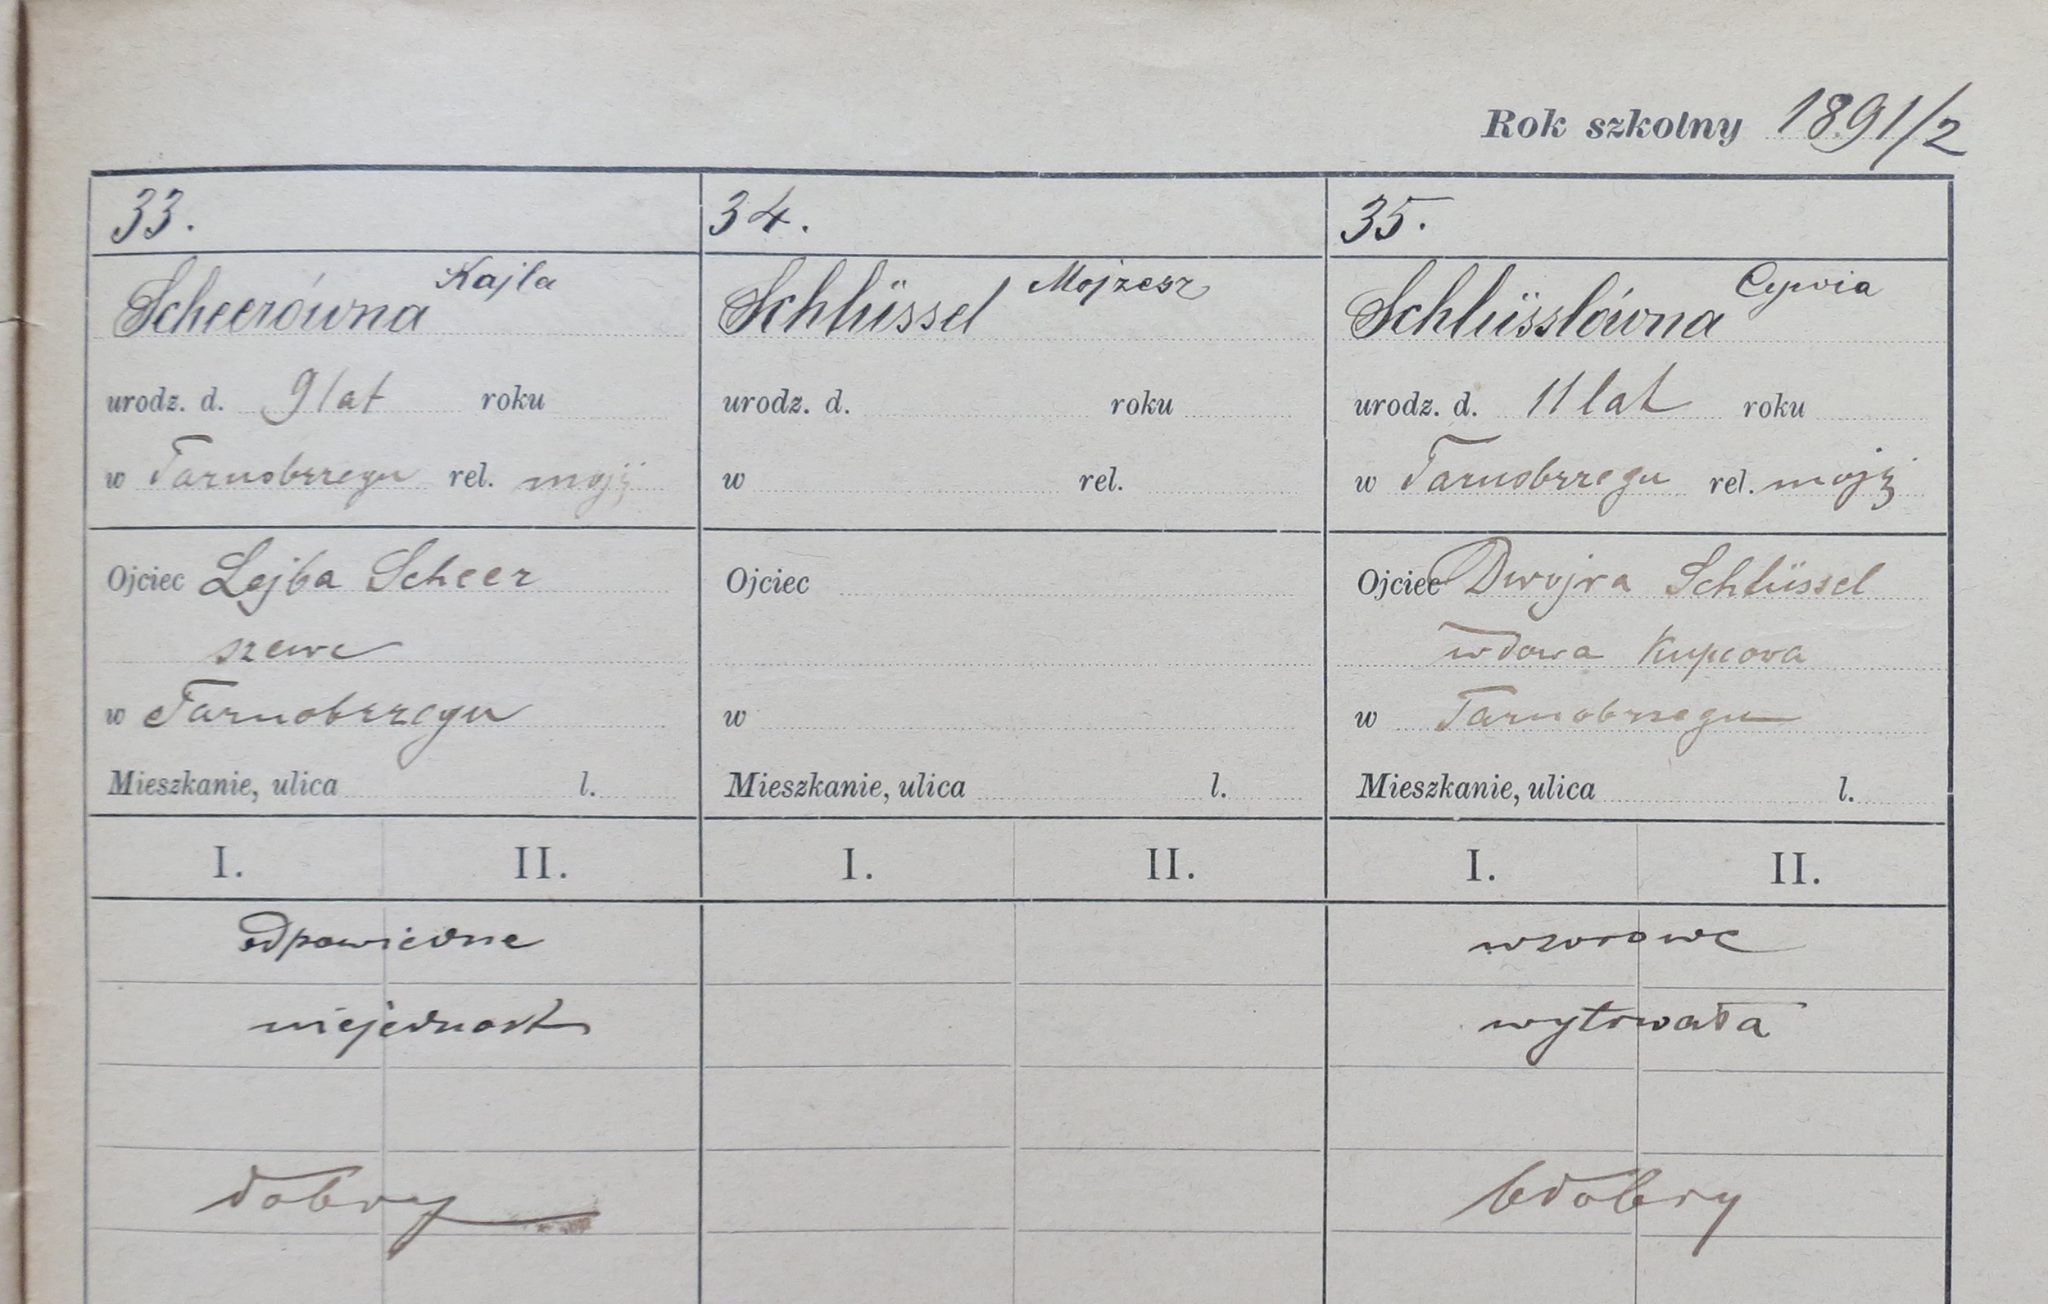 Rok szkolny 1891/2
33.
Scheerówna Kajla
urodz. d. 9 lat roku
w Tarnobrzegu rel. mojż
Ojciec Lejba Scheer
szewc
w Tarnobrzegu
Mieszkanie, ulica l.
I. II.
odpowiedne
niejednost
dobry
34.
Schlüssel Mojzesz
urodz. d. roku
w rel.
Ojciec
w
Mieszkanie, ulica l.
I. II.
35.
Schlüsslówna Cywia
urodz. d. 11 lat roku
w Tarnobrzegu rel. mojż
Ojciec Dwojra Schlüssel
wdowa Kupcowa
w Tarnobrzegu
Mieszkanie, ulica l.
I. II.
wzorowe
wytrwała
bdobry